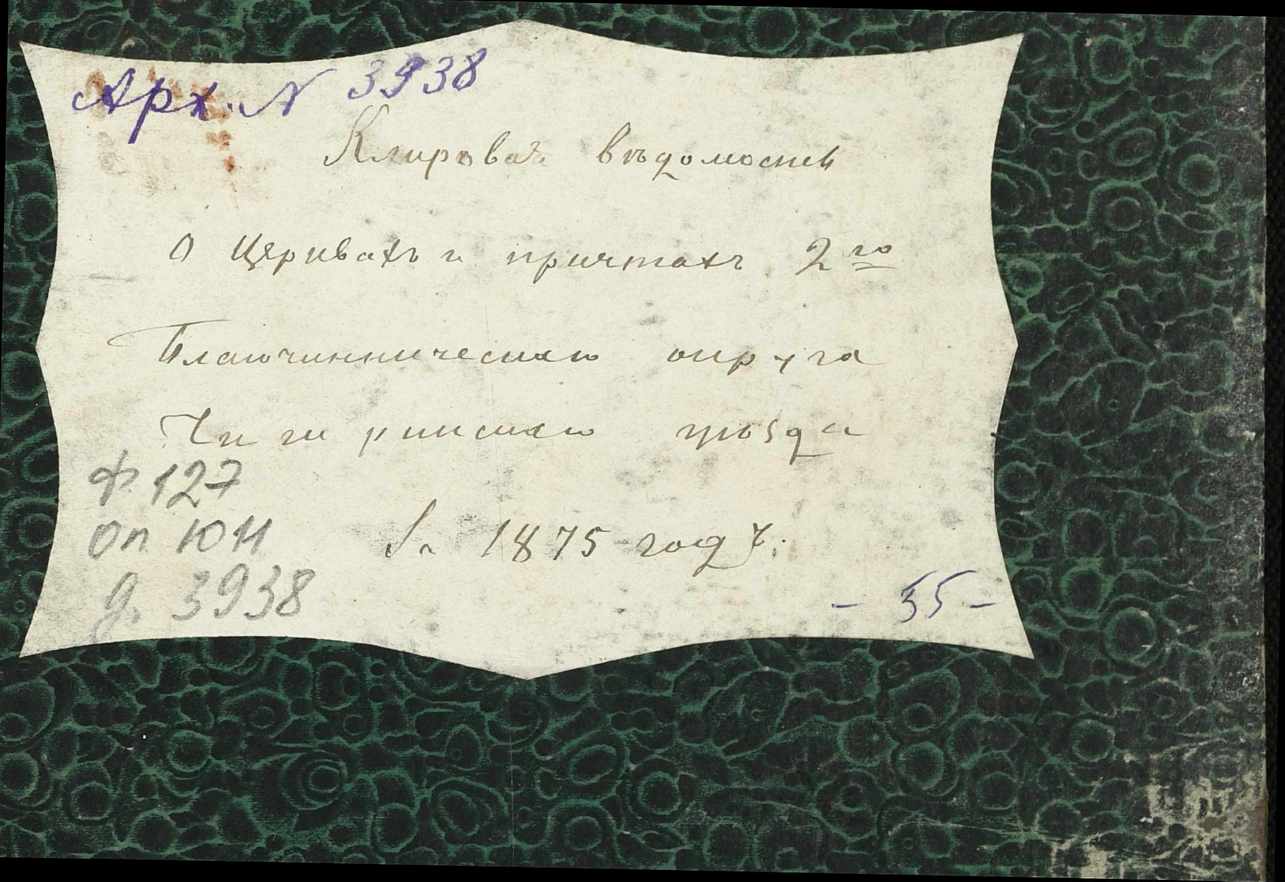 Арх. N 3938
Клировая вѣдомость
О Церквахъ и причтахъ 2го
Благочинническаго округа
Чигиринскаго уѣзда
Ф. 127
оп 1011
За 1875 годъ.
д. 3938
- 55 -